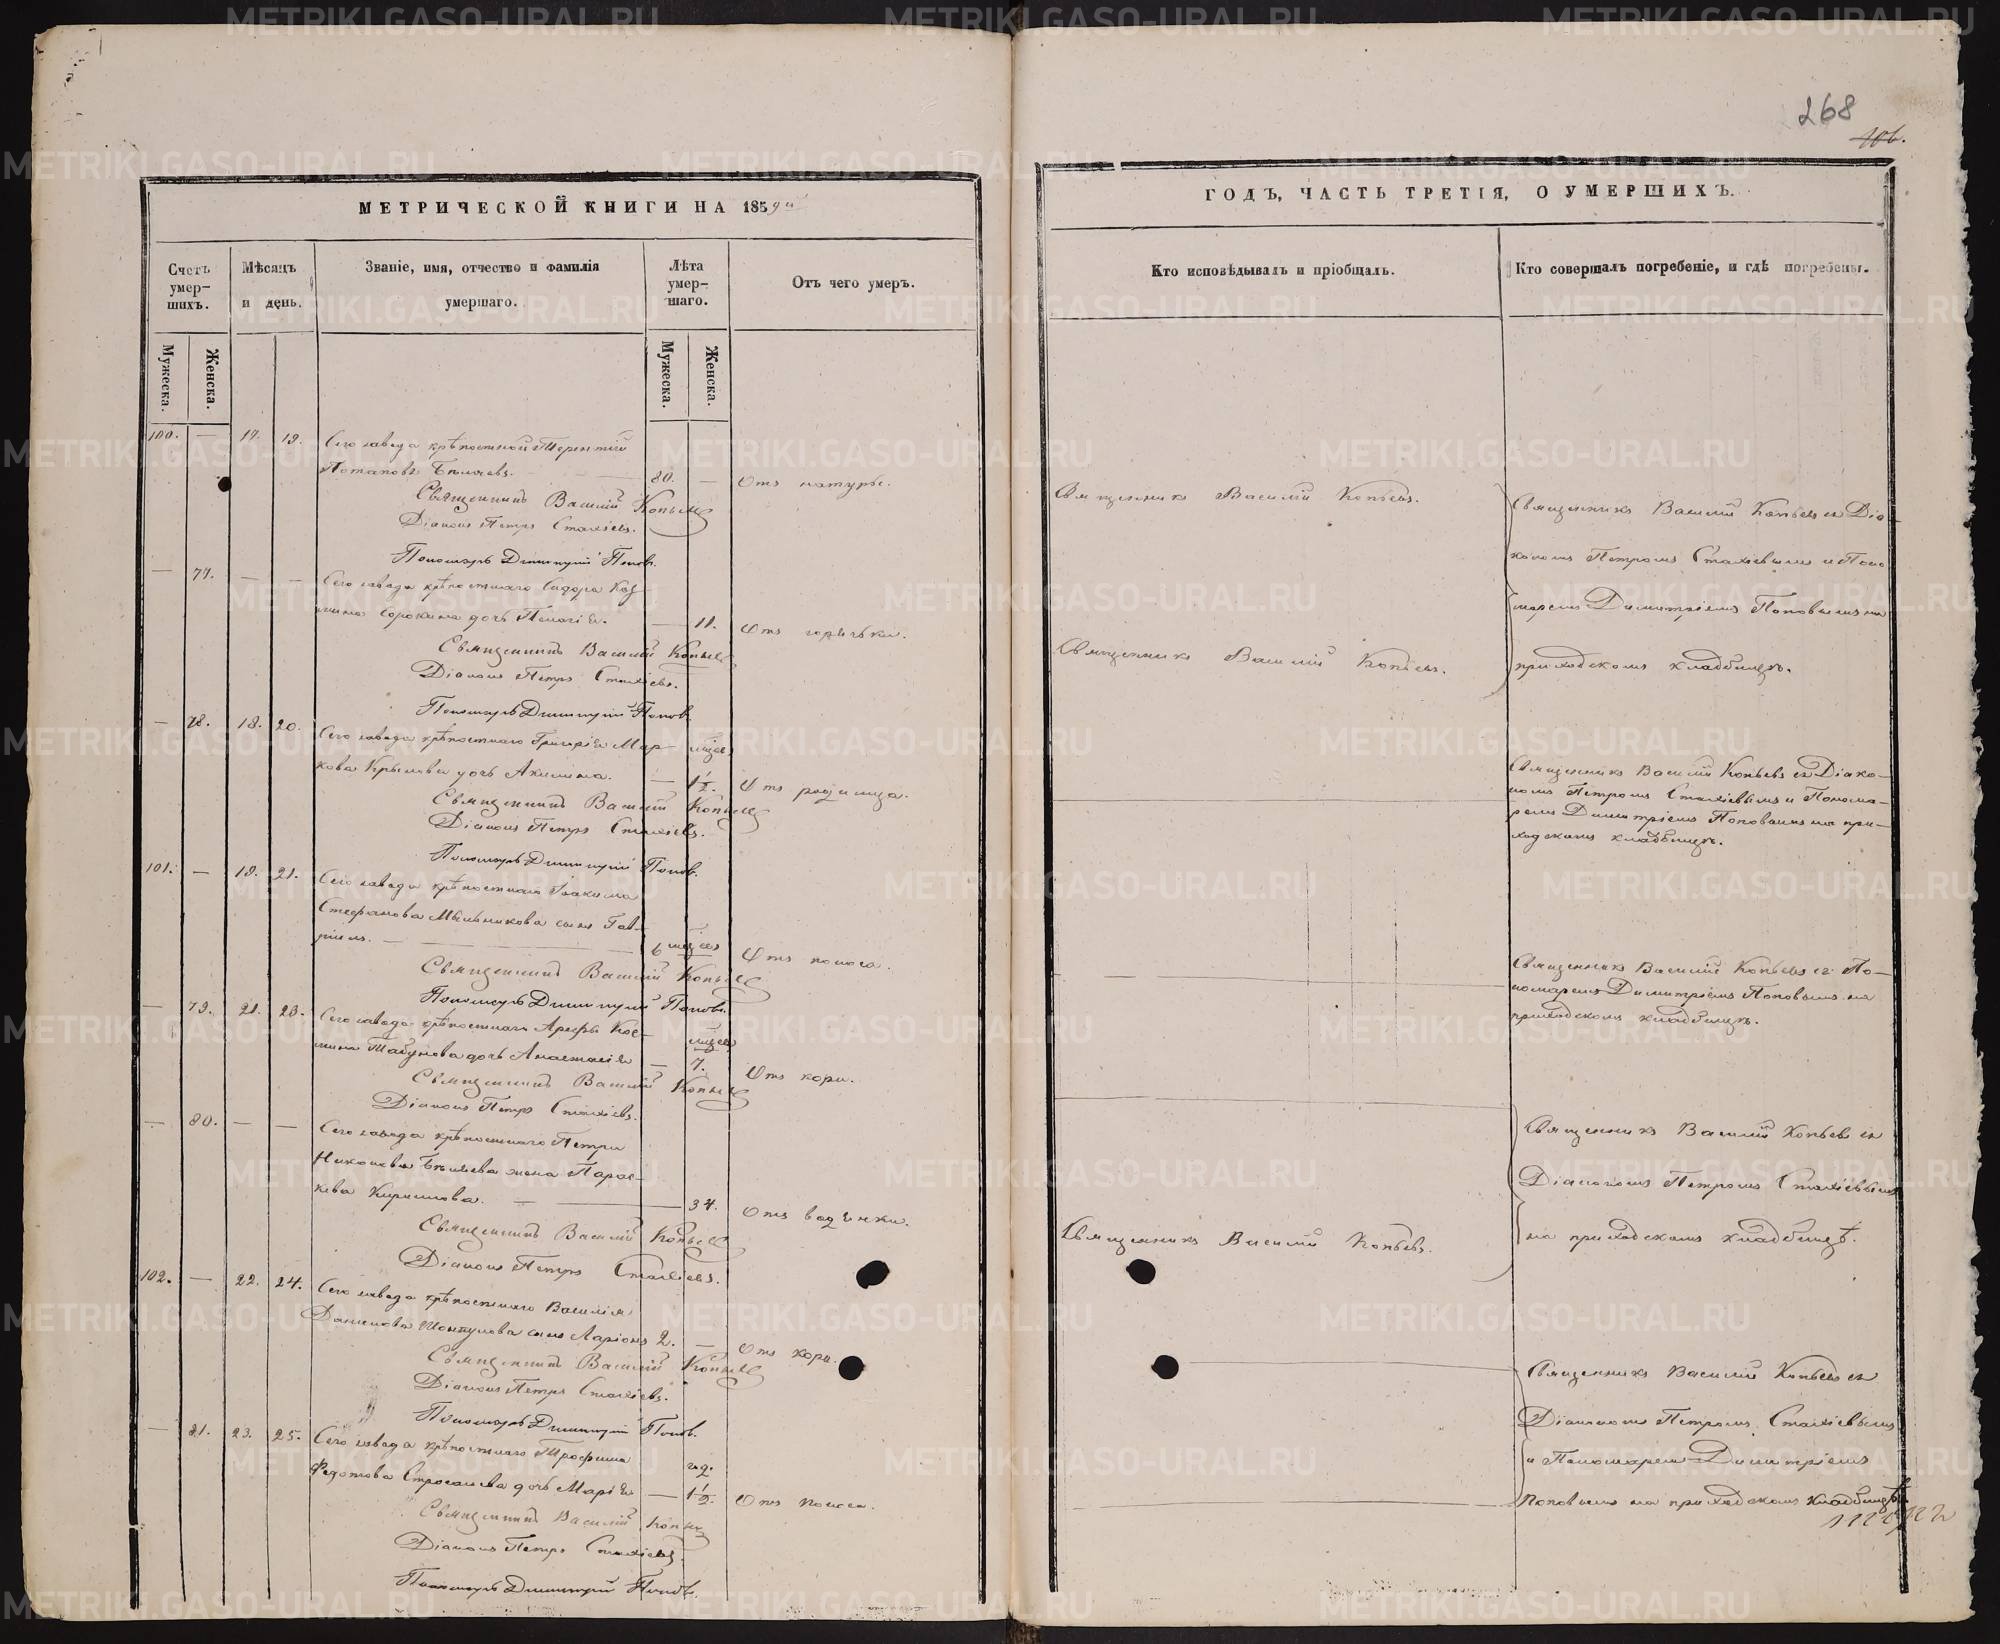 268
106.
МЕТРИЧЕСКОЙ КНИГИ НА 1859й
ГОДЪ, ЧАСТЬ ТРЕТІЯ, О УМЕРШИХЪ.
Счетъ умер-шихъ.
Мужеска.
Женска.
Мѣсяцъ и день.
Званіе, имя, отчество и фамилія умершаго.
Лѣта умер-шаго.
Мужеска.
Женска.
Отъ чего умеръ.
Кто исповѣдывалъ и пріобщалъ.
Кто совершалъ погребеніе, и гдѣ погребены.
100. — 17. 19. Сего завода крѣпостной Терентій
Потаповъ Бѣляевъ. 80. — Отъ натуры.
Священникъ Василій Копьевъ
Діаконъ Петръ Стахіевъ.
Пономарь Димитрій Поповъ.
Священникъ Василій Копьевъ.
Священникъ Василій Копьевъ съ Діа-
кономъ Петромъ Стахіевымъ и Поно
маремъ Димитріемъ Поповымъ на
приходскомъ кладбищѣ.
— 77. — — Сего завода крѣпостнаго Сидора Коз
мина Сорокина дочь Пелагія. — 11. Отъ горячки.
Священникъ Василій Копьевъ
Діаконъ Петръ Стахіевъ.
Пономарь Димитрій Поповъ
Священникъ Василій Копьевъ.
— 78. 18. 20. Сего завода крѣпостнаго Григорія Мар-
кова Крылова дочь Акилина. — 1½ Отъ родимца.
Священникъ Василій Копьевъ
Діаконъ Петръ Стахіевъ.
Пономарь Димитрій Поповъ.
Священникъ Василій Копьевъ съ Діако-
номъ Петромъ Стахіевымъ и Понома-
ремъ Димитріемъ Поповымъ на при-
ходскомъ кладбищѣ.
101. — 19. 21. Сего завода крѣпостнаго Іоакима
Стефанова Мыльникова сынъ Гав-
ріилъ. — 6 Отъ поноса.
Священникъ Василій Копьевъ
Пономарь Димитрій Поповъ.
Священникъ Василій Копьевъ съ По-
номаремъ Димитріемъ Поповымъ на
приходскомъ кладбищѣ.
— 79. 21. 23. Сего завода крѣпостнаго Арефы Кос-
мина Табунова дочь Анастасія — 7. Отъ кори.
Священникъ Василій Копьевъ
Діаконъ Петръ Стахіевъ.
— 80. — — Сего завода крѣпостнаго Петра
Никонова Бѣляева жена Парас-
кева Кирилова. — 34. Отъ водянки.
Священникъ Василій Копьевъ
Діаконъ Петръ Стахіевъ.
Священникъ Василій Копьевъ.
Священникъ Василій Копьевъ съ
Діакономъ Петромъ Стахіевымъ
на приходскомъ кладбищѣ.
102. — 22. 24. Сего завода крѣпостнаго Василія
Данилова сынъ Ларіонъ 2. — Отъ кори.
Священникъ Василій Копьевъ
Діаконъ Петръ Стахіевъ.
Пономарь Димитрій Поповъ.
Священникъ Василій Копьевъ съ
Діакономъ Петромъ Стахіевымъ
и Пономаремъ Димитріемъ
Поповымъ на приходскомъ кладбищѣ
— 81. 23. 25. Сего завода крѣпостнаго Трофима
Федотова дочь Марія — 1½. Отъ поноса.
Священникъ Василій Копьевъ
Діаконъ Петръ Стахіевъ.
Пономарь Димитрій Поповъ.
METRIKI.GASO-URAL.RU